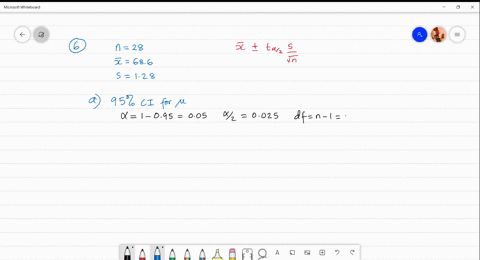 Microsoft Whiteboard
6 n = 28 x̄ ± tα/2 s/√n
x̄ = 68.6
s = 1.28
a) 95% CI for μ
α = 1 - 0.95 = 0.05 α/2 = 0.025 df = n - 1 =